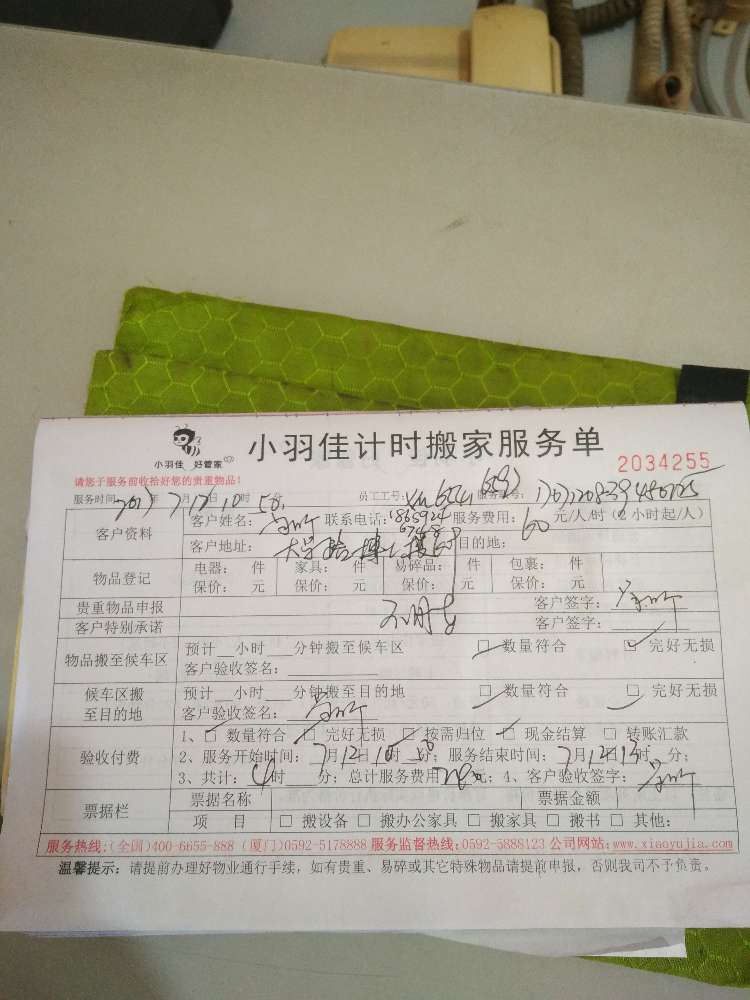 小羽佳 好管家
小羽佳计时搬家服务单
2034255
请您于服务前收拾好您的贵重物品!
服务时间: 2017年7月12日10时50分 员工工号: 服务单号:
客户资料 客户姓名: 联系电话: 服务费用:60元/人/时(2小时起/人)
客户地址: 目的地:
物品登记 电器: 件 家具: 件 易碎品: 件 包裹: 件
保价: 元 保价: 元 保价: 元 保价: 元
贵重物品申报 客户签字:
客户特别承诺 客户签字:
物品搬至候车区 预计__小时___分钟搬至候车区 □ 数量符合 □ 完好无损
客户验收签名:
候车区搬至目的地 预计__小时___分钟搬至目的地 □ 数量符合 □ 完好无损
客户验收签名:
验收付费 1、□ 数量符合 □ 完好无损 □ 按需归位 □ 现金结算 □ 转账汇款
2、服务开始时间:7月12日10时50分; 服务结束时间:7月12日13时__分;
3、共计: 时___分; 总计服务费用 元; 4、客户验收签字:
票据栏 票据名称 票据金额
项 目 □ 搬设备 □ 搬办公家具 □ 搬家具 □ 搬书 □ 其他:
服务热线:(全国)400-6655-888 (厦门)0592-5178888 服务监督热线:0592-5888123 公司网站:www.xiaoyujia.com
温馨提示: 请提前办理好物业通行手续, 如有贵重、易碎或其它特殊物品请提前申报, 否则我司不予负责。